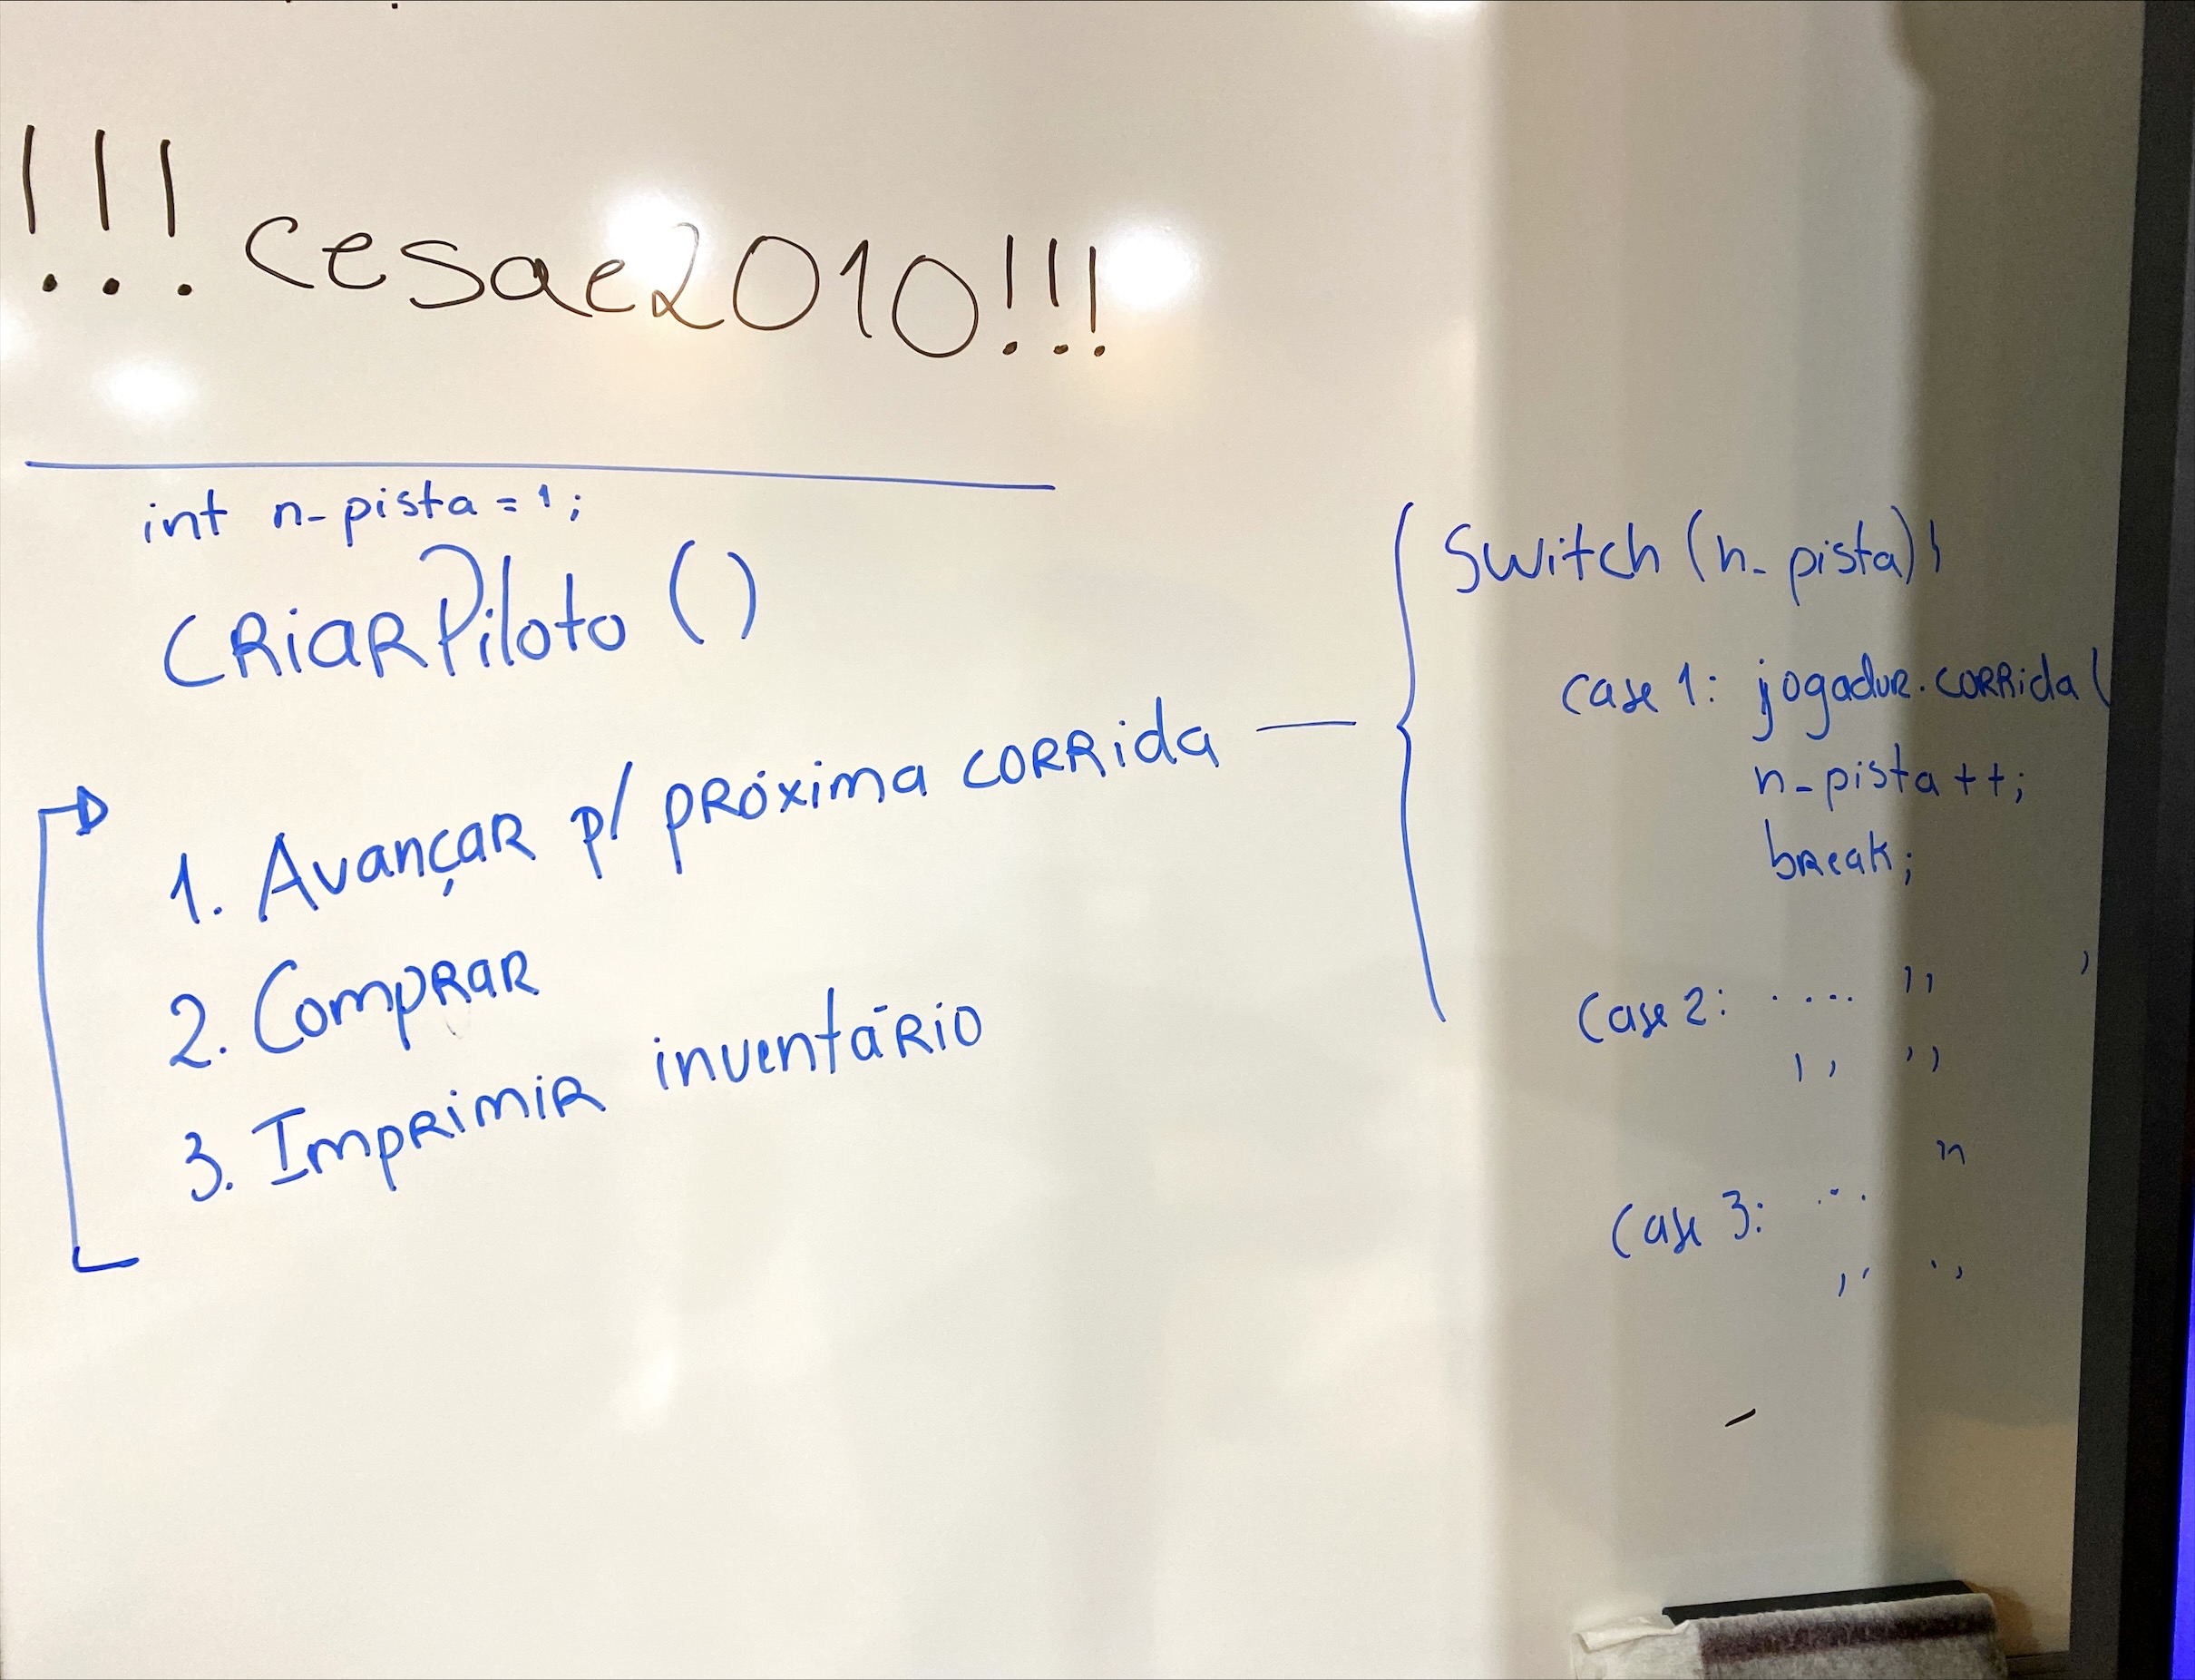 !!!cesae2010!!!
int n_pista = 1;
CRiaRPiloto ()
1. AvançaR p/ pRóxima coRRida
2. CompRaR
3. ImpRimiR inventáRio
Switch (n_pista)
case 1: jogadoR.coRRida(
n_pista ++;
bReak;
Case 2: .... ,,
,, ,,
Case 3: ... ,,
,, ,,